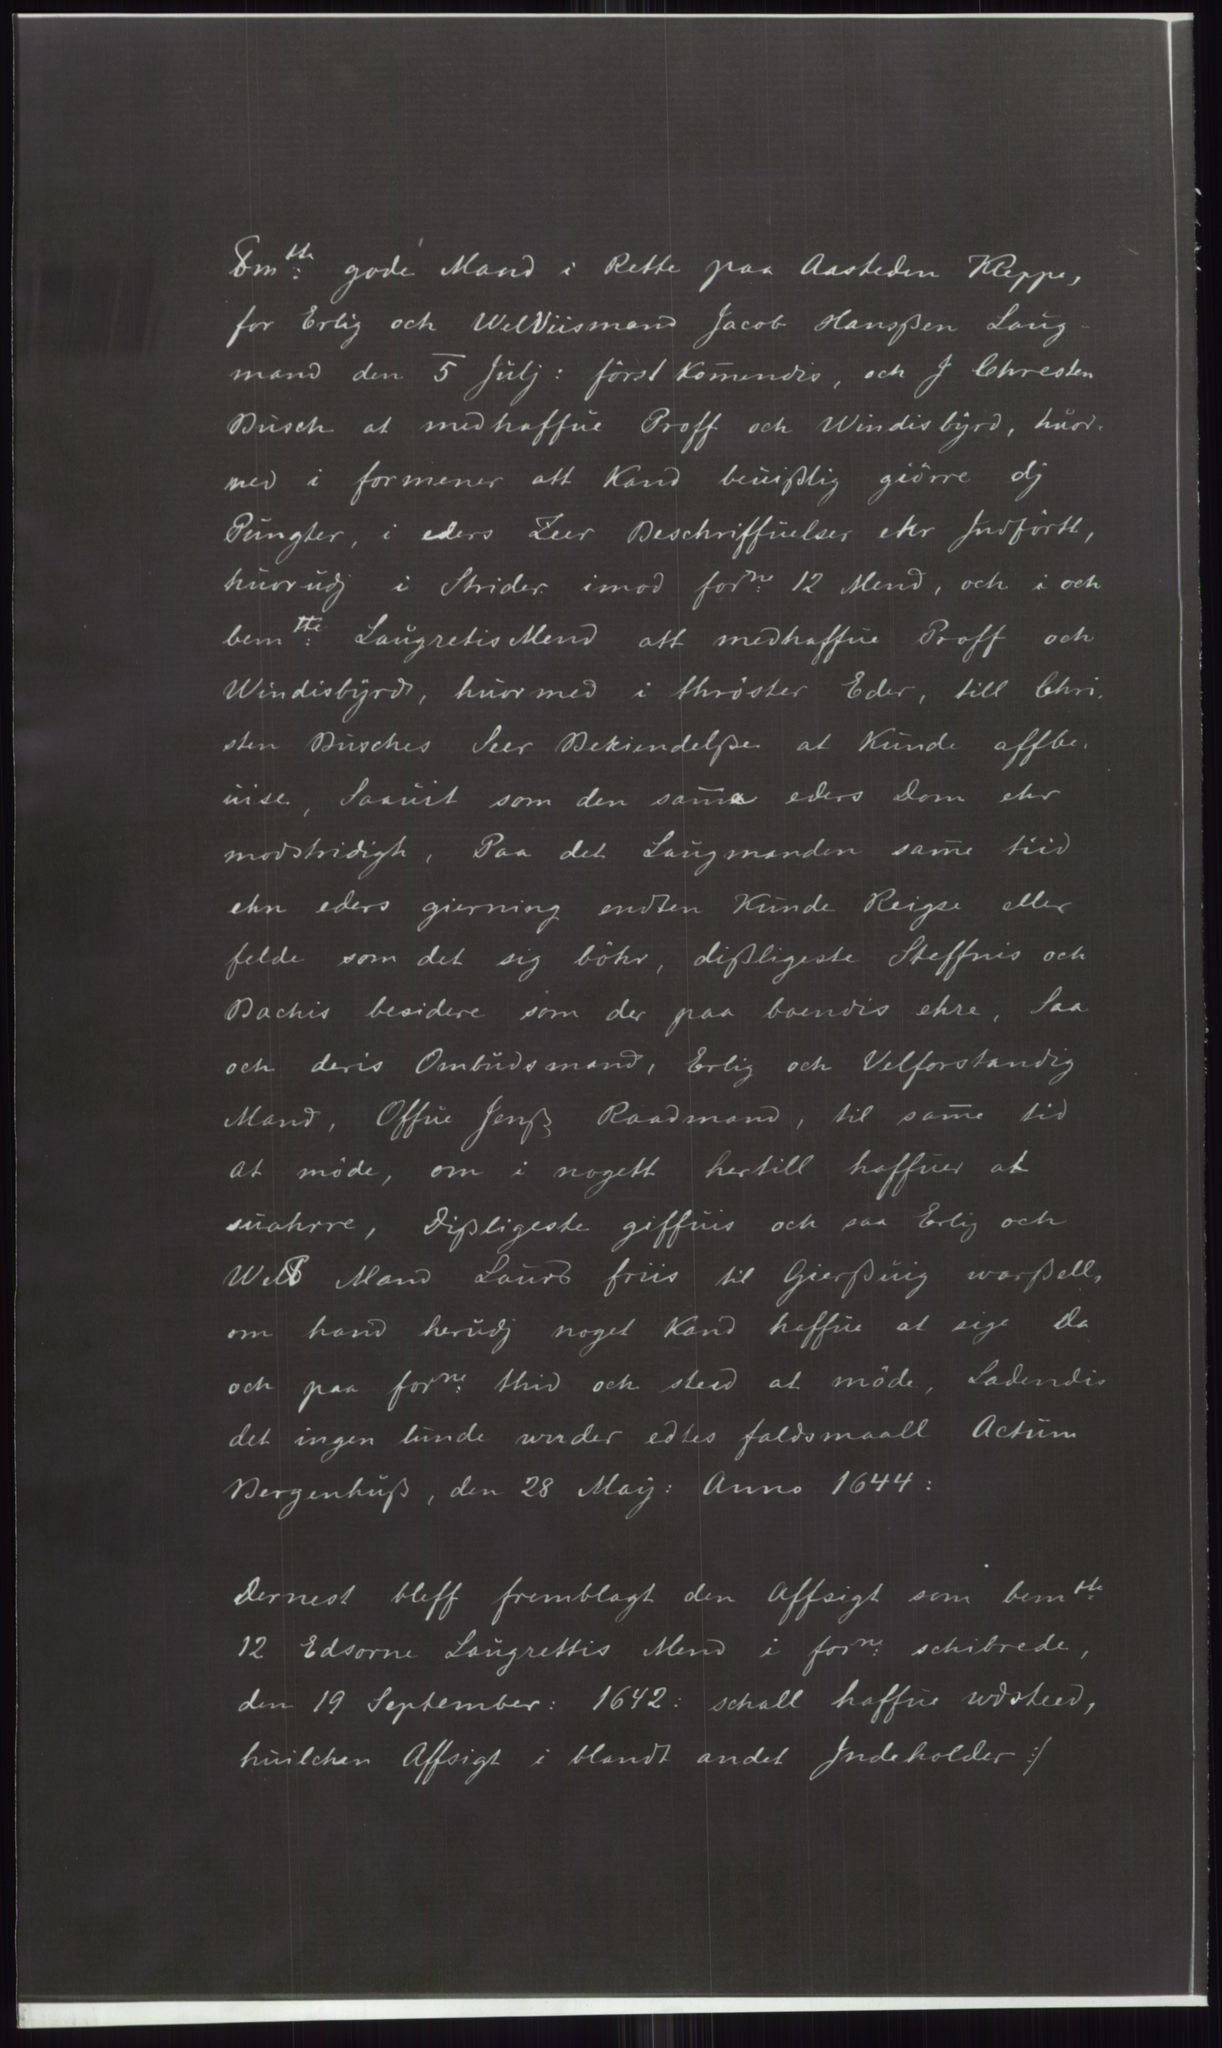 bm^tte: gode Mand i Rette paa Aasteden Kleppe,
for Erlig och WelViismand Jacob Hanßen Laug-
mand den 5 Julj: först Kom̄endis, och J Chresten
Busch at medhaffue Proff och Windisbÿrd, huor-
med i formener att Kand beuißlig giörre dj
Pungter, i eders Zeer Beschriffuelser ehr Jndförtt,
huorudj i Strider imod for^ne: 12 Mend, och i och
bem^tte: Laugretis Mend att medhaffue Proff och
Windisbÿrd, huormed i thröster Eder, till Chri-
sten Busches Seer Bekiendelße at Kunde affbe-
uise, Saauit som den sam̄a eders Dom ehr
modstridigh, Paa det Laugmanden sam̄e tiid
ehn eders gierning endten Kunde Reigse eller
felde som det sig böhr, dißligeste Steffnis och
Bachis besidere som der paa boendis ehre, Saa
och deris Ombudsmand, Erlig och Velforstandig
Mand, Offue Jenß Raadmand, til sam̄e tid
at möde, om i nogett hertill haffuer at
suahrre, Dißligeste giffuis och saa Erlig och
Welb Mand Laurs friis til Gierßuig warßell,
om hand herudj noget Kand haffue at sige Da
och paa for^ne: thid och sted at möde, Ladendis
det ingen lunde under edtes faldsmaall Actum
Bergenhuß, den 28 Maij: Anno 1644:
Dernest bleff fremblagt den Affsigt som bem^tte:
12 Edsorne Laugrettis Mend i for^ne: schibrede,
den 19 September: 1642: schall haffue udsteed,
huilchen Affsigt i blandt andet Jndeholder :/